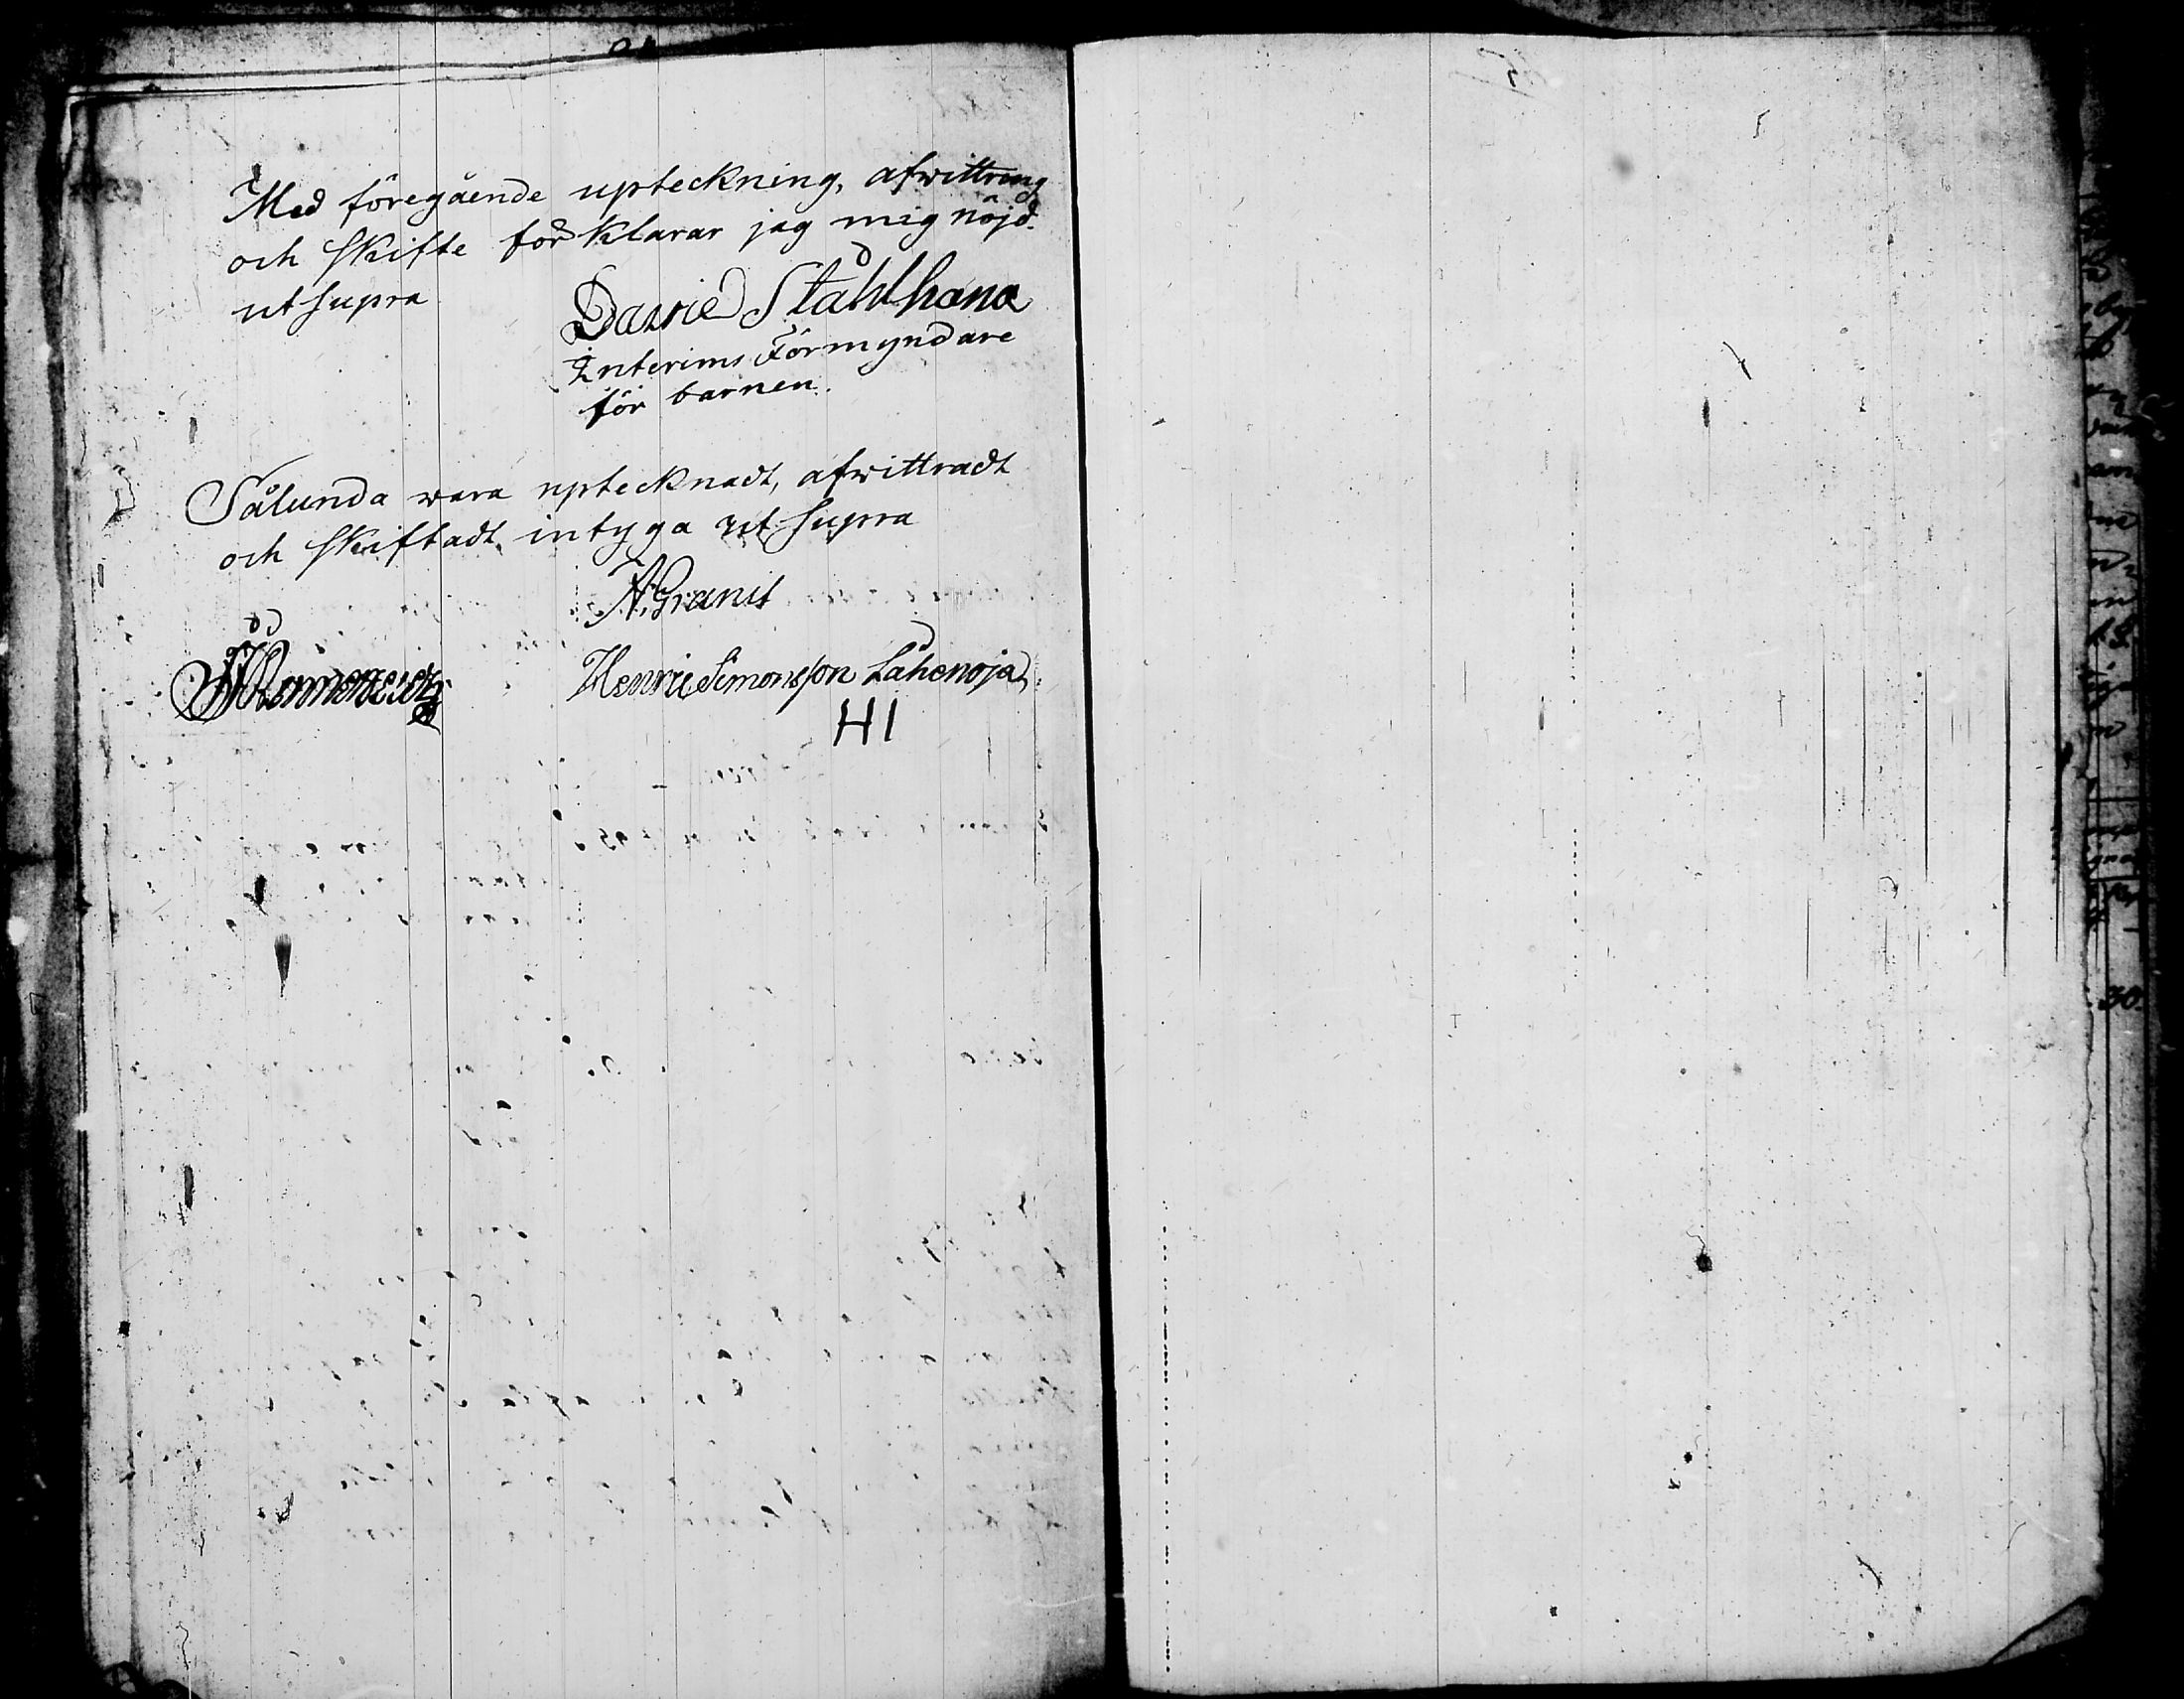 Med föregående upteckning, afwittring
och skifte förklarar jag mig nöjd.
ut supra
David Ståhlhana
Interims Förmyndare
för barnen.
Sålunda wara uptecknadt, afwittradt
och skiftadt, intyga ut supra
A. Granit
Henric Simonsson Lähenoja
HI
30.